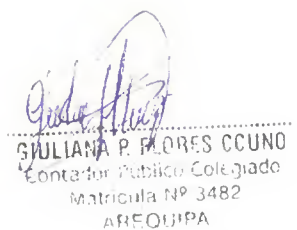 GIULIANA P. FLORES CCUNO
Contador Público Colegiado
Matrícula Nº 3482
AREQUIPA